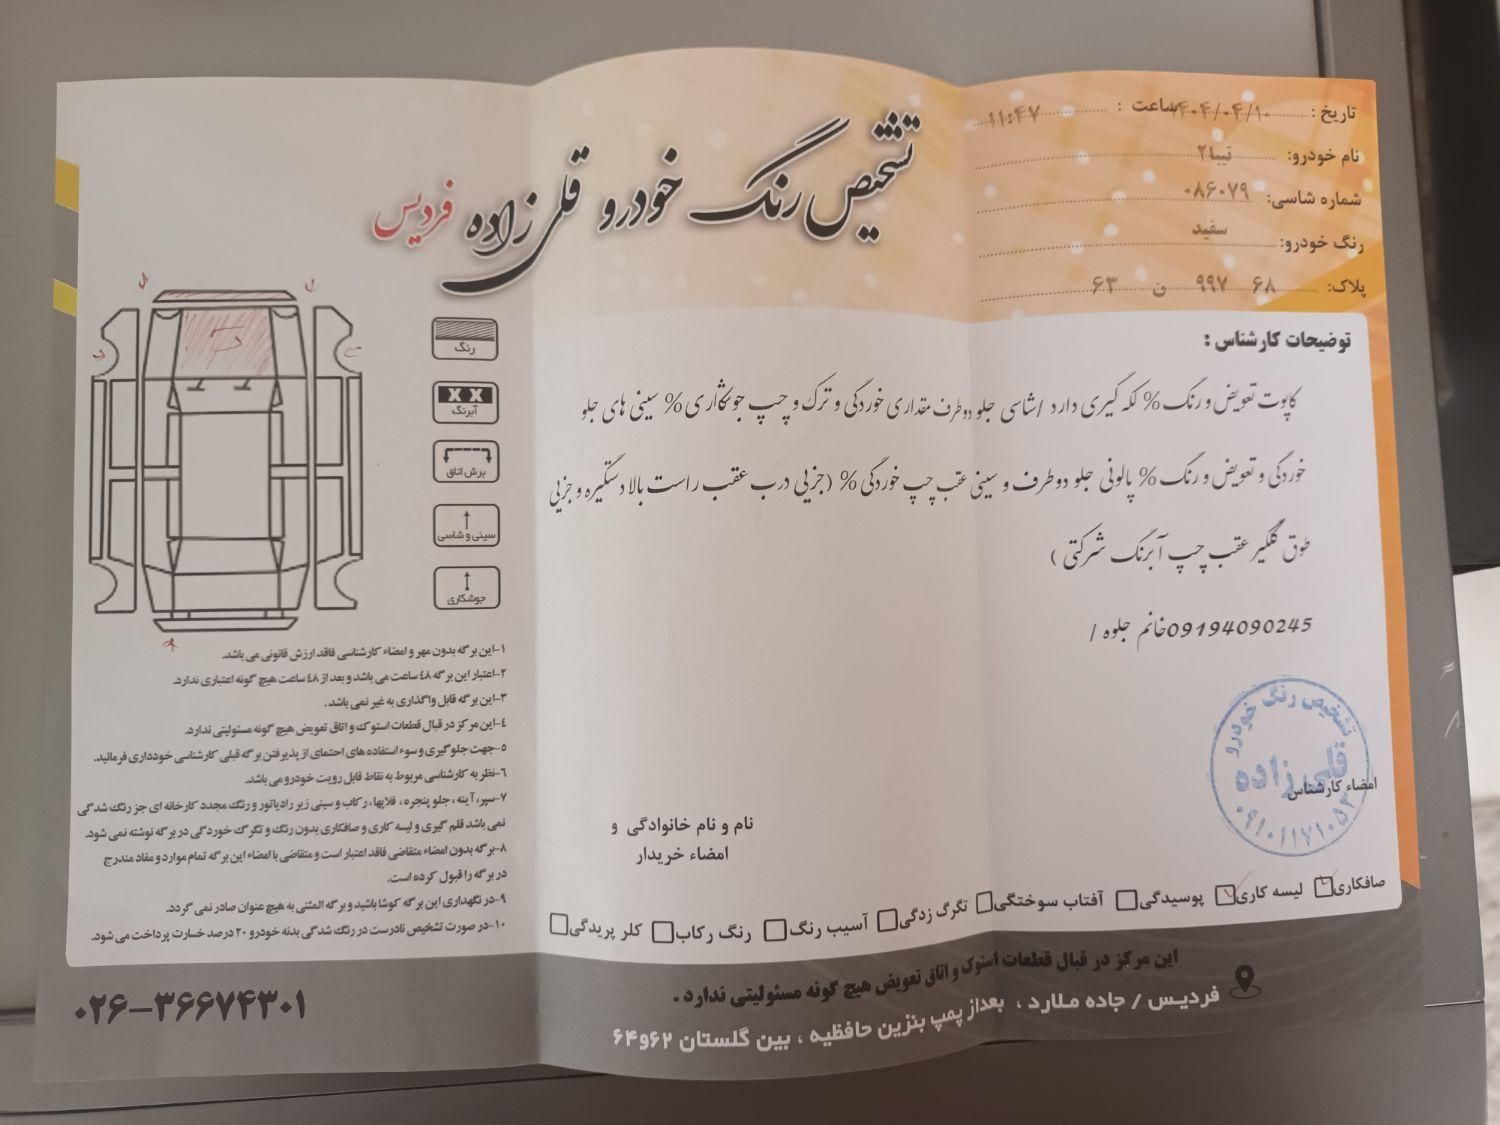 تشخیص رنگ خودرو قلی زاده فردیس
تاریخ: ۱۴۰۴/۰۴/۱۰ ساعت: ۱۱:۴۷
نام خودرو: تیبا۲
شماره شاسی: ۰۸۶۰۷۹
رنگ خودرو: سفید
پلاک: ۶۸ ۹۹۷ ن ۶۳
توضیحات کارشناس :
کاپوت تعویض و رنگ% لکه گیری دارد /شاسی جلو دوطرف مقداری خوردگی و ترک و چپ جوشکاری% سینی های جلو
خوردگی و تعویض و رنگ% پالونی جلو دوطرف و سینی عقب چپ خوردگی% (جزیی درب عقب راست بالا دستگیره و جزیی
طوق گلگیر عقب چپ آبرنگ شرکتی )
09194090245خانم جلوه /
رنگ
X X
آبرنگ
برش اتاق
سینی و شاسی
جوشکاری
۱-این برگه بدون مهر و امضاء کارشناسی فاقد ارزش قانونی می باشد.
۲-اعتبار این برگه ۴۸ ساعت می باشد و بعد از ۴۸ ساعت هیچ گونه اعتباری ندارد.
۳-این برگه قابل واگذاری به غیر نمی باشد.
۴-این مرکز در قبال قطعات استوک و اتاق تعویض هیچ گونه مسئولیتی ندارد.
۵-جهت جلوگیری و سوء استفاده های احتمای از پذیرفتن برگه قبلی کارشناسی خودداری فرمائید.
۶-نظر به کارشناسی مربوط به نقاط قابل رویت خودرو می باشد.
۷-سپر، آینه ، جلو پنجره ، فلاپها، رکاب و سینی زیر رادیاتور و رنگ مجدد کارخانه ای جز رنگ شدگی
نمی باشد قلم گیری و لیسه کاری و صافکاری بدون رنگ و تگرگ خوردگی در برگه نوشته نمی شود.
۸-برگه بدون امضاء متقاضی فاقد اعتبار است و متقاضی با امضاء این برگه تمام موارد و مفاد مندرج
در برگه را قبول کرده است.
۹-در نگهداری این برگه کوشا باشید و برگه المثنی به هیچ عنوان صادر نمی گردد.
۱۰-در صورت تشخیص نادرست در رنگ شدگی بدنه خودرو ۲۰ درصد خسارت پرداخت می شود.
نام و نام خانوادگی و
امضاء خریدار
تشخیص رنگ خودرو
قلی زاده
امضاء کارشناس
صافکاری لیسه کاری پوسیدگی آفتاب سوختگی تگرگ زدگی آسیب رنگ رنگ رکاب کلر پریدگی
این مرکز در قبال قطعات استوک و اتاق تعویض هیچ گونه مسئولیتی ندارد .
فردیس / جاده ملارد ، بعداز پمپ بنزین حافظیه ، بین گلستان ۶۲و۶۴
۰۲۶-۳۶۶۷۴۳۰۱